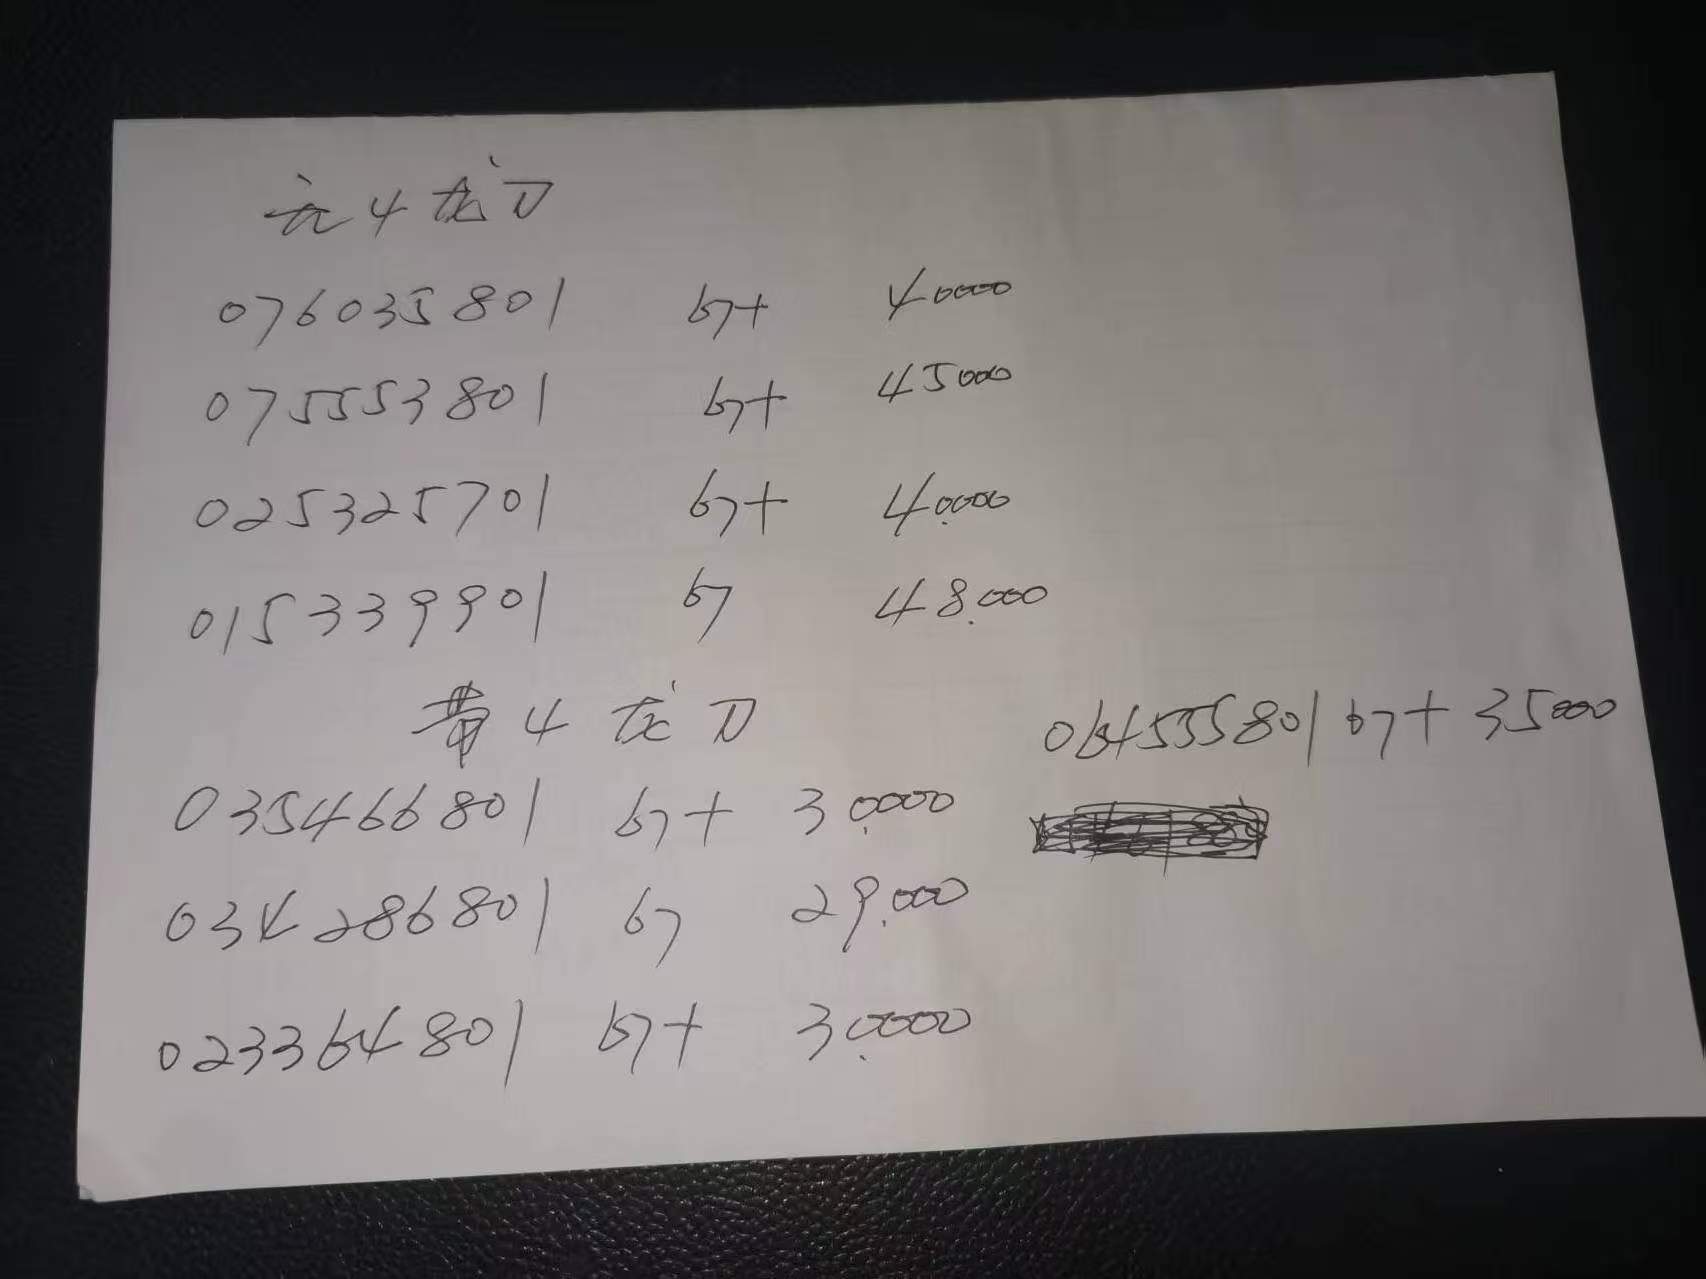 元4龙刀
076035801 67+ 40000
075553801 67+ 45000
025325701 67+ 40.000
015339901 67 48.000
黄4龙刀
064535801 67+ 35000
035466801 67+ 30.000
034286801 67 29.000
023364801 67+ 30.000